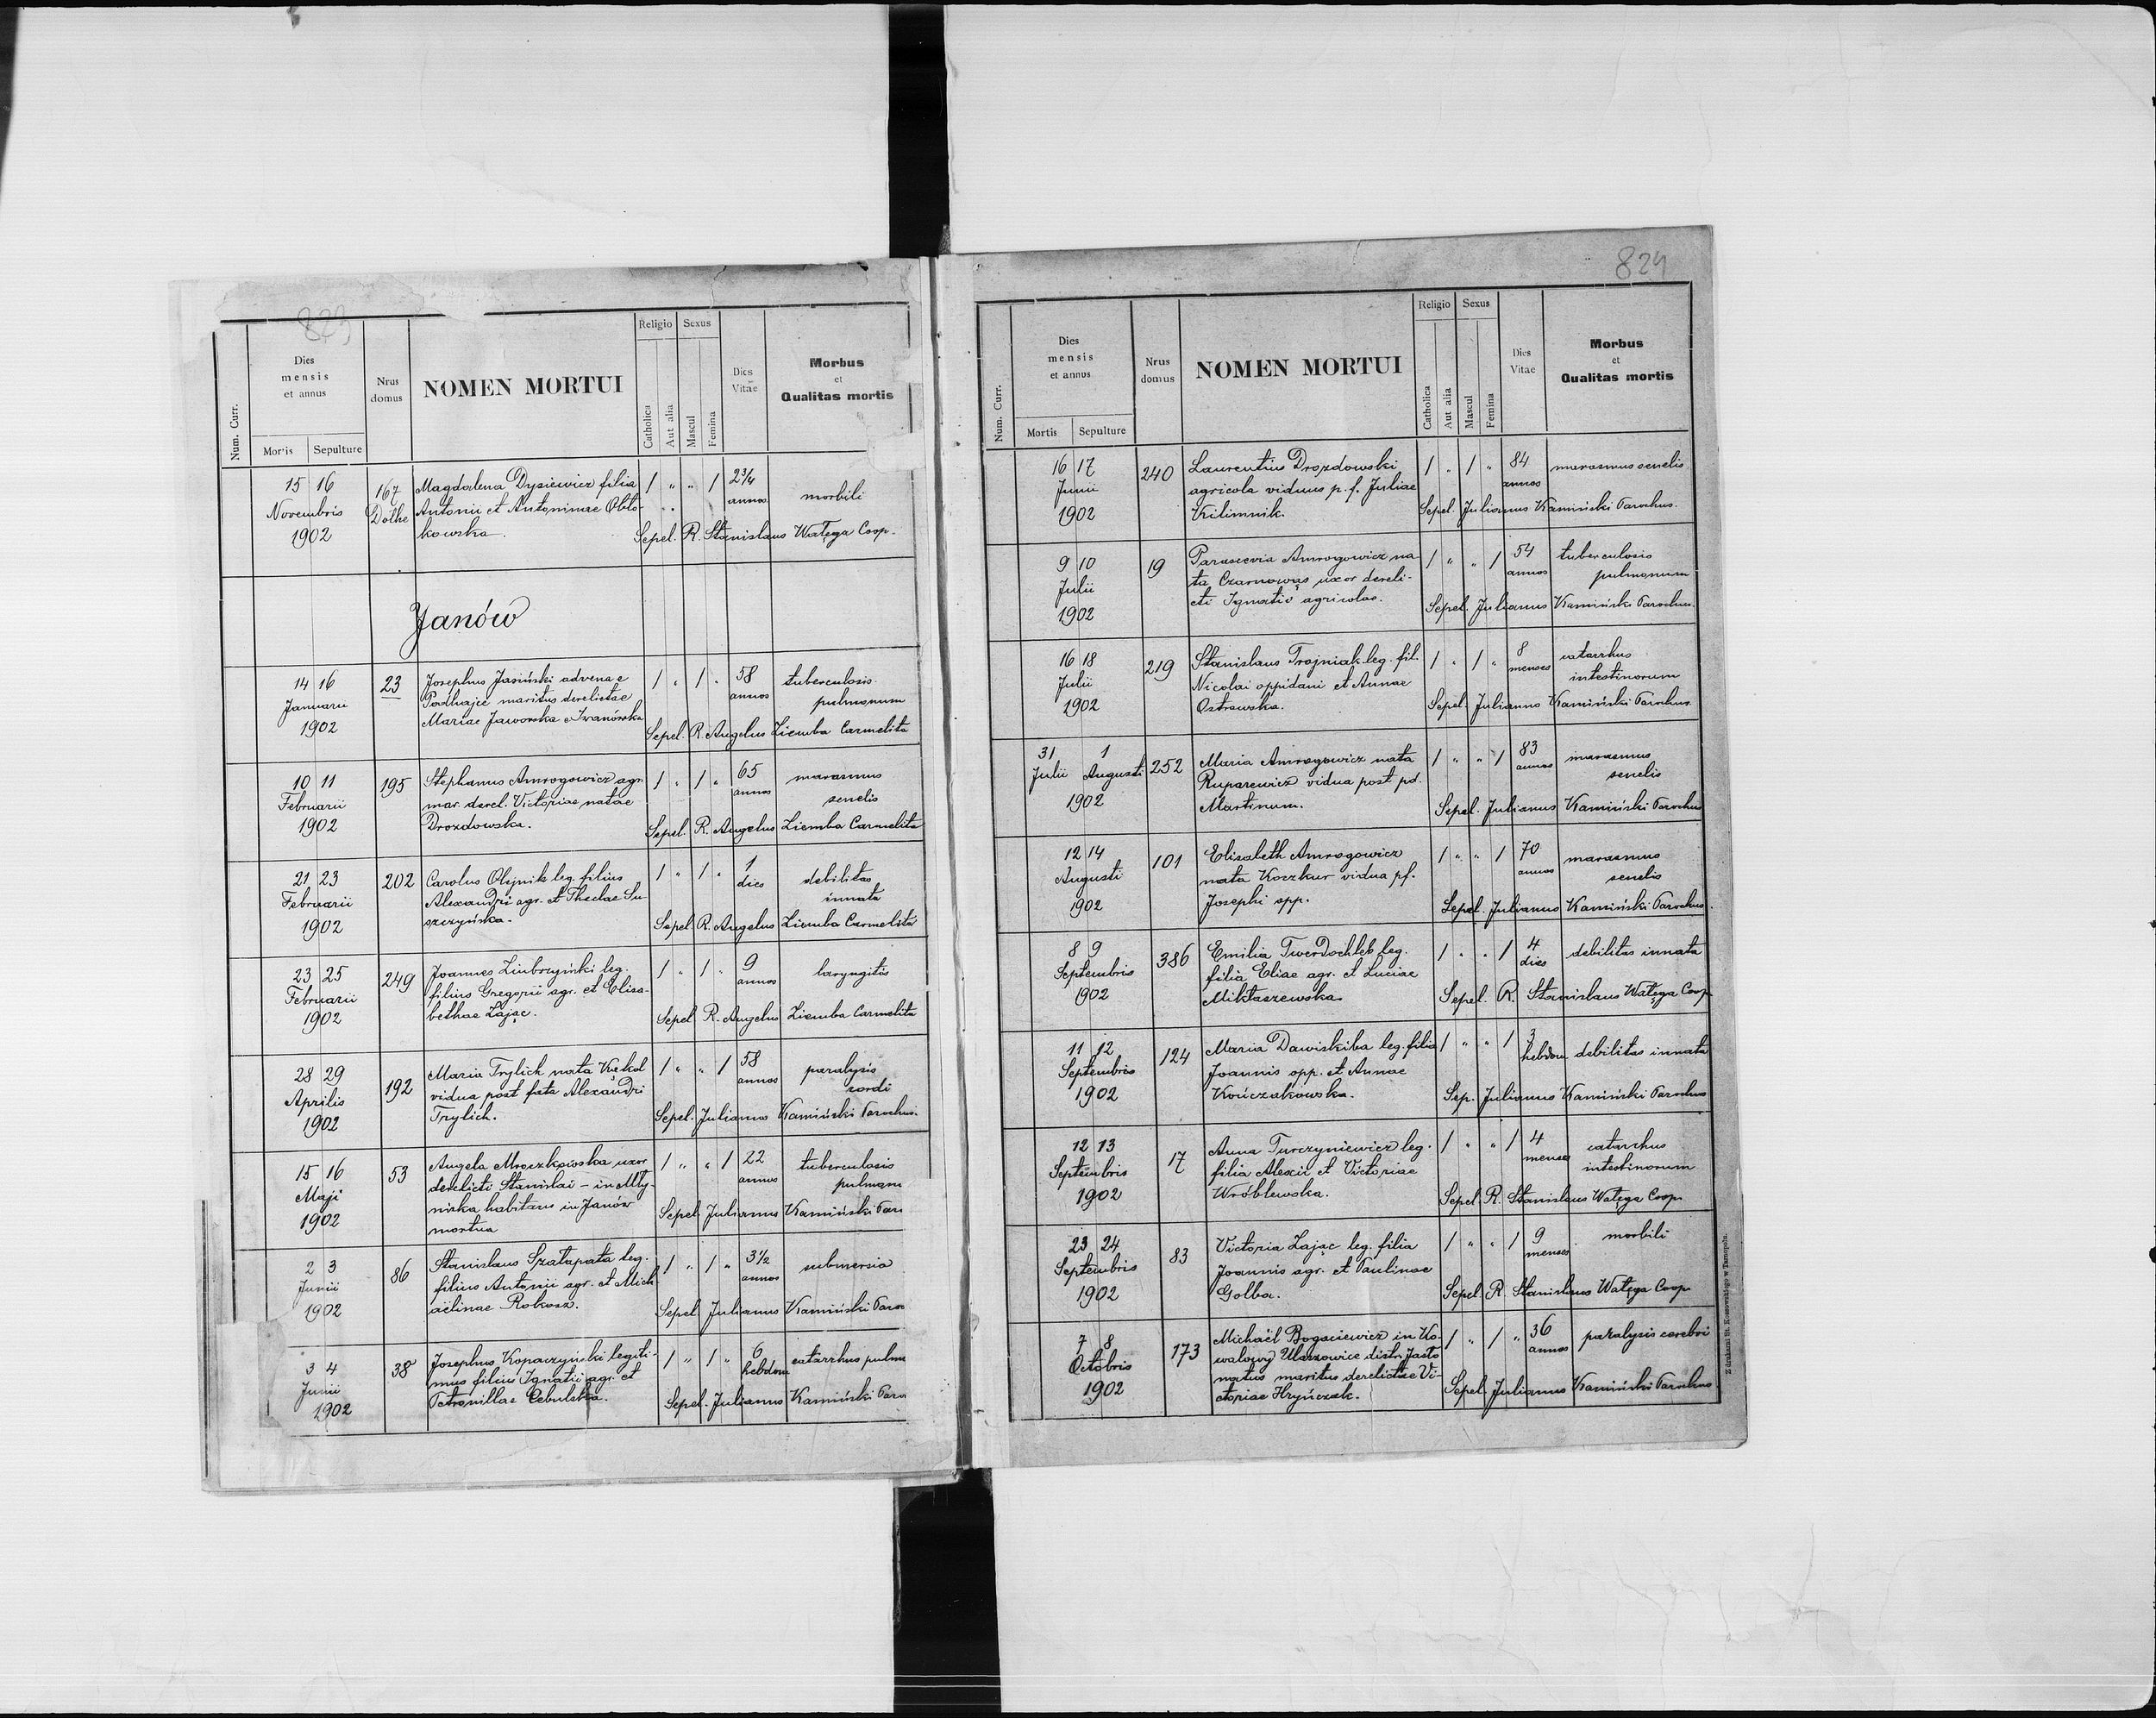 823
Num. Curr.
Dies mensis et annus
Mortis Sepulture
Nrus domus
NOMEN MORTUI
Religio
Catholica
Aut alia
Sexus
Mascul
Femina
Dies Vitae
Morbus et Qualitas mortis
15 16 167 Magdalena Dysiewicz filia 1 " " 1 2 3/4
Novembris Dołhe Antonii et Antoninae annos morbili
1902 kowska. Sepel. R. Stanislaus Watęga Coop.
Janów
14 16 23 Josephus Jasiński advena e 1 " 1 " 58 tuberculosis
Januarii Podhajce maritus derelictae annos pulmonum
1902 Mariae Jaworska e Iwanówka Sepel. R. Angelus Ziemba Carmelita
10 11 195 Stephanus Amrogowicz agr. 1 " 1 " 65 marasmus
Februarii mar. derel. Victoriae natae annos senelis
1902 Drozdowska. Sepel. R. Angelus Ziemba Carmelita
21 23 202 Carolus Olejnik leg. filius 1 " 1 " 1 debilitas
Februarii Alexandri agr. et Theclae Su- dies innata
1902 szczyńska. Sepel. R. Angelus Ziemba Carmelita
23 25 249 Joannes Ziubrzyński leg. 1 " 1 " 9 laryngitis
Februarii filius Gregorii agr. et Elisa- annos
1902 bethae Zając. Sepel R. Angelus Ziemba Carmelita
28 29 192 Maria Trylich nata Kąkol 1 " " 1 58 paralysis
Aprilis vidua post fata Alexandri annos cordi
1902 Trylich. Sepel. Julianus Kamiński Parochus.
15 16 53 Angela Mroczkowska uxor 1 " " 1 22 tuberculosis
Maji derelicti Stanislai – in Mły- annos pulmonu
1902 niska habitans in Janów Sepel. Julianus Kamiński Par
mortua
2 3 86 Stanislaus Szałapata leg. 1 " 1 " 3 1/2 submersia
Junii filius Antonii agr. et Mich annos
1902 aëlinae Rokosz. Sepel Julianus Kamiński Paro
3 4 38 Josephus Kopaczyński legiti- 1 " 1 " 6 catarrhus pulm
Junii mus filius Ignatii agr. et hebdom
1902 Petronillae Cebulska. Sepel. Julianus Kamiński Paro
824
Num. Curr.
Dies mensis et annus
Mortis Sepulture
Nrus domus
NOMEN MORTUI
Religio
Catholica
Aut alia
Sexus
Mascul
Femina
Dies Vitae
Morbus et Qualitas mortis
16 17 240 Laurentius Drozdowski 1 " 1 " 84 marasmus senelis
Junii agricola viduus p. f. Juliae annos
1902 Kilimnik. Sepel. Julianus Kamiński Parochus.
9 10 19 Parascevia Amrogowicz na- 1 " " 1 54 tuberculosis
Julii ta Czarnowąs uxor dereli- annos pulmonum
1902 cti Ignatii agricolae. Sepel. Julianus Kamiński Parochus.
16 18 219 Stanislaus Trojniak leg. fil. 1 " 1 " 8 catarrhus
Julii Nicolai oppidani et Annae menses intestinorum
1902 Ostrowska. Sepel. Julianus Kamiński Parochus
31 1 252 Maria Amrogowicz nata 1 " " 1 83 marasmus
Julii Augusti Ruparewicz vidua post pd. annos senelis
1902 Martinum. Sepel. Julianus Kamiński Parochus
12 14 101 Elisabeth Amrogowicz 1 " " 1 70 marasmus
Augusti nata Koczkur vidua pf. annos senelis
902 Josephi opp. Sepel. Julianus Kamiński Parochus.
8 9 386 Emilia Twerdochleb leg. 1 " " 1 4 debilitas innata
Septembris filia Eliae agr. et Luciae dies
1902 Miktaszewska. Sepel R. Stanislaus Watęga Coop.
11 12 124 Maria Dawiskiba leg. filia 1 " " 1 3 debilitas innata
Septembris Joannis opp. et Annae hebdom
1902 Kończakowska. Sep. Julianus Kamiński Parochus
12 13 17 Anna Turczyniewicz leg. 1 " " 1 4 catarrhus
Septembris filia Alexii et Victoriae menses intestinorum
1902 Wróblewska. Sepel R. Stanislaus Watęga Coop.
23 24 83 Victoria Zając leg. filia 1 " " 1 9 morbili
Septembris Joannis agr. et Paulinae menses
1902 Golba. Sepel. R. Stanislaus Watęga Coop
7 8 173 Michaël Bogaciewicz in Ko- 1 " 1 " 36 paralysis cerebri
Octobris walowy distr. Jasło annos
1902 natus maritus derelictae Vi- Sepel Julianus Kamiński Parochus
ctoriae Hryńczak.
Z drukarni St. Kossowskiego w Tarnopolu.